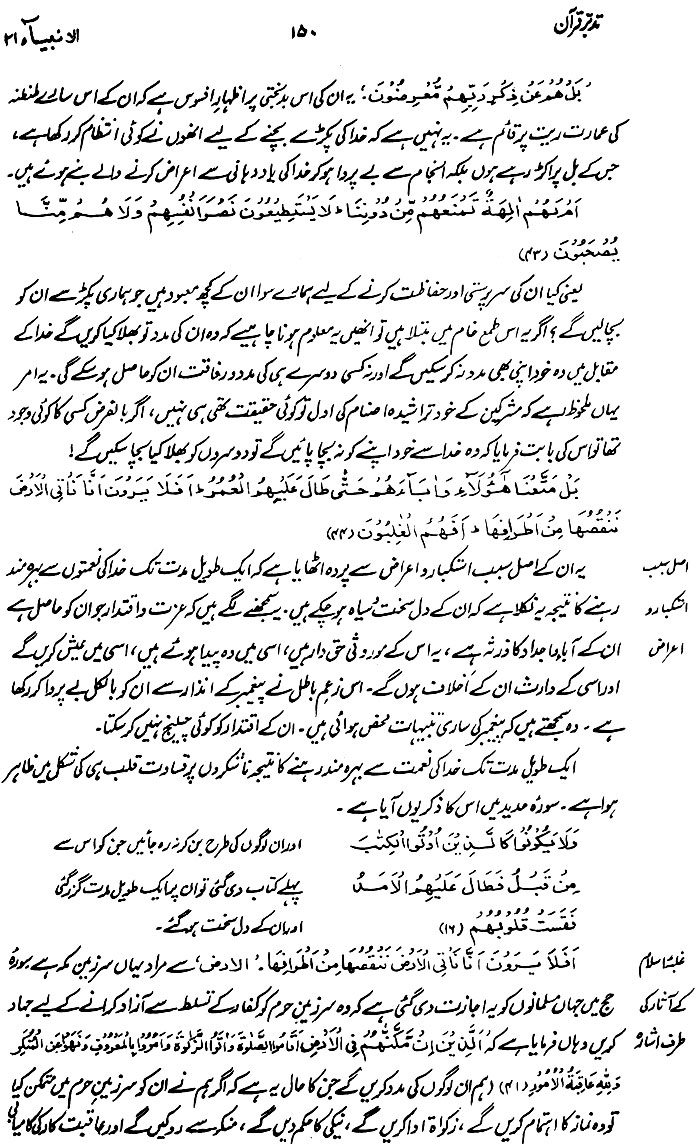 تدبرِ قرآن ۱۵۰ الانبیآء ۲۱
'بَلْ هُمْ عَنْ ذِكْرِ رَبِّهِمْ مُّعْرِضُوْنَ' یہ ان کی اس بدبختی پر اظہارِ افسوس ہے کہ ان کے اس سارے طنطنہ
کی عمارت ریت پر قائم ہے۔ یہ نہیں ہے کہ خدا کی پکڑ سے بچنے کے لیے انھوں نے کوئی انتظام کر رکھا ہے،
جس کے بل پر اکڑ رہے ہوں بلکہ انجام سے بے پروا ہو کر خدا کی یاد دہانی سے اعراض کرنے والے بنے ہوئے ہیں۔
اَمْ لَهُمْ اٰلِهَةٌ تَمْنَعُهُمْ مِّنْ دُوْنِنَا ؕ لَا يَسْتَطِيْعُوْنَ نَصْرَ اَنْفُسِهِمْ وَلَا هُمْ مِّنَّا
يُصْحَبُوْنَ (۴۳)
یعنی کیا ان کی سرپرستی اور حفاظت کرنے کے لیے ہمارے سوا ان کے کچھ معبود ہیں جو ہماری پکڑ سے ان کو
بچا لیں گے؟ اگر یہ اس طمعِ خام میں مبتلا ہیں تو انھیں یہ معلوم ہونا چاہیے کہ وہ ان کی مدد تو بھلا کیا کریں گے خدا کے
مقابل میں وہ خود اپنی بھی مدد نہ کر سکیں گے اور نہ کسی دوسرے ہی کی مدد و رفاقت ان کو حاصل ہو سکے گی۔ یہ امر
یہاں ملحوظ رہے کہ مشرکین کے خود تراشیدہ اصنام کی اول تو کوئی حقیقت تھی ہی نہیں، اگر بالفرض کسی کا کوئی وجود
تھا تو اس کی بابت فرمایا کہ وہ خدا سے خود اپنے کو نہ بچا پائیں گے تو دوسروں کو بھلا کیا بچا سکیں گے!
بَلْ مَتَّعْنَا هٰٓؤُلَآءِ وَاٰبَآءَهُمْ حَتّٰى طَالَ عَلَيْهِمُ الْعُمُرُ ؕ اَفَلَا يَرَوْنَ اَنَّا نَاْتِى الْاَرْضَ
نَنْقُصُهَا مِنْ اَطْرَافِهَا ؕ اَفَهُمُ الْغٰلِبُوْنَ (۴۴)
اصل سبب یہ ان کے اصل سببِ استکبار و اعراض سے پردہ اٹھایا ہے کہ ایک طویل مدت تک خدا کی نعمتوں سے بہرہ مند
استکبار و رہنے کا نتیجہ یہ نکلا ہے کہ ان کے دل سخت و سیاہ ہو چکے ہیں۔ یہ سمجھنے لگے ہیں کہ عزت و اقتدار جو ان کو حاصل ہے
اعراض ان کے آباء و اجداد کا ورثہ ہے، یہ اس کے موروثی حق دار ہیں، اسی میں وہ پیدا ہوئے ہیں، اسی میں عیش کریں گے
اور اسی کے وارث ان کے اخلاف ہوں گے۔ اس زعمِ باطل نے پیغمبر کے انذار سے ان کو بالکل بے پروا کر رکھا
ہے۔ وہ سمجھتے ہیں کہ پیغمبر کی ساری تنبیہات محض ہوائی ہیں۔ ان کے اقتدار کو کوئی چیلنج نہیں کر سکتا۔
ایک طویل مدت تک خدا کی نعمت سے بہرہ مند رہنے کا نتیجہ ناشکروں پر قساوتِ قلب ہی کی شکل میں ظاہر
ہوا ہے۔ سورۂ حدید میں اس کا ذکر یوں آیا ہے۔
وَلَا يَكُوْنُوْا كَالَّذِيْنَ اُوْتُوا الْكِتٰبَ اور ان لوگوں کی طرح بن کر نہ رہ جائیں جن کو اس سے
مِنْ قَبْلُ فَطَالَ عَلَيْهِمُ الْاَمَدُ پہلے کتاب دی گئی تو ان پر ایک طویل مدت گزر گئی
فَقَسَتْ قُلُوْبُهُمْ (۱۶) اور ان کے دل سخت ہو گئے۔
غلبۂ اسلام 'اَفَلَا يَرَوْنَ اَنَّا نَاْتِى الْاَرْضَ نَنْقُصُهَا مِنْ اَطْرَافِهَا'۔ 'الارض' سے مراد یہاں سرزمینِ مکہ ہے۔ سورۂ
کے آثار کی حج میں جہاں مسلمانوں کو یہ اجازت دی گئی ہے کہ وہ سرزمینِ حرم کو کفار کے تسلط سے آزاد کرانے کے لیے جہاد
طرف اشارہ کریں وہاں فرمایا ہے کہ اَلَّذِيْنَ اِنْ مَّكَّنّٰهُمْ فِى الْاَرْضِ اَقَامُوا الصَّلٰوةَ وَاٰتَوُا الزَّكٰوةَ وَاَمَرُوْا بِالْمَعْرُوْفِ وَنَهَوْا عَنِ الْمُنْكَرِ
وَلِلّٰهِ عَاقِبَةُ الْاُمُوْرِ (۴۱) (ہم ان لوگوں کی مدد کریں گے جن کا حال یہ ہے کہ اگر ہم نے ان کو سرزمینِ حرم میں متمکن کیا
تو وہ نماز کا اہتمام کریں گے، زکوٰۃ ادا کریں گے، نیکی کا حکم دیں گے، منکر سے روکیں گے اور عاقبتِ کار کی کامیابی